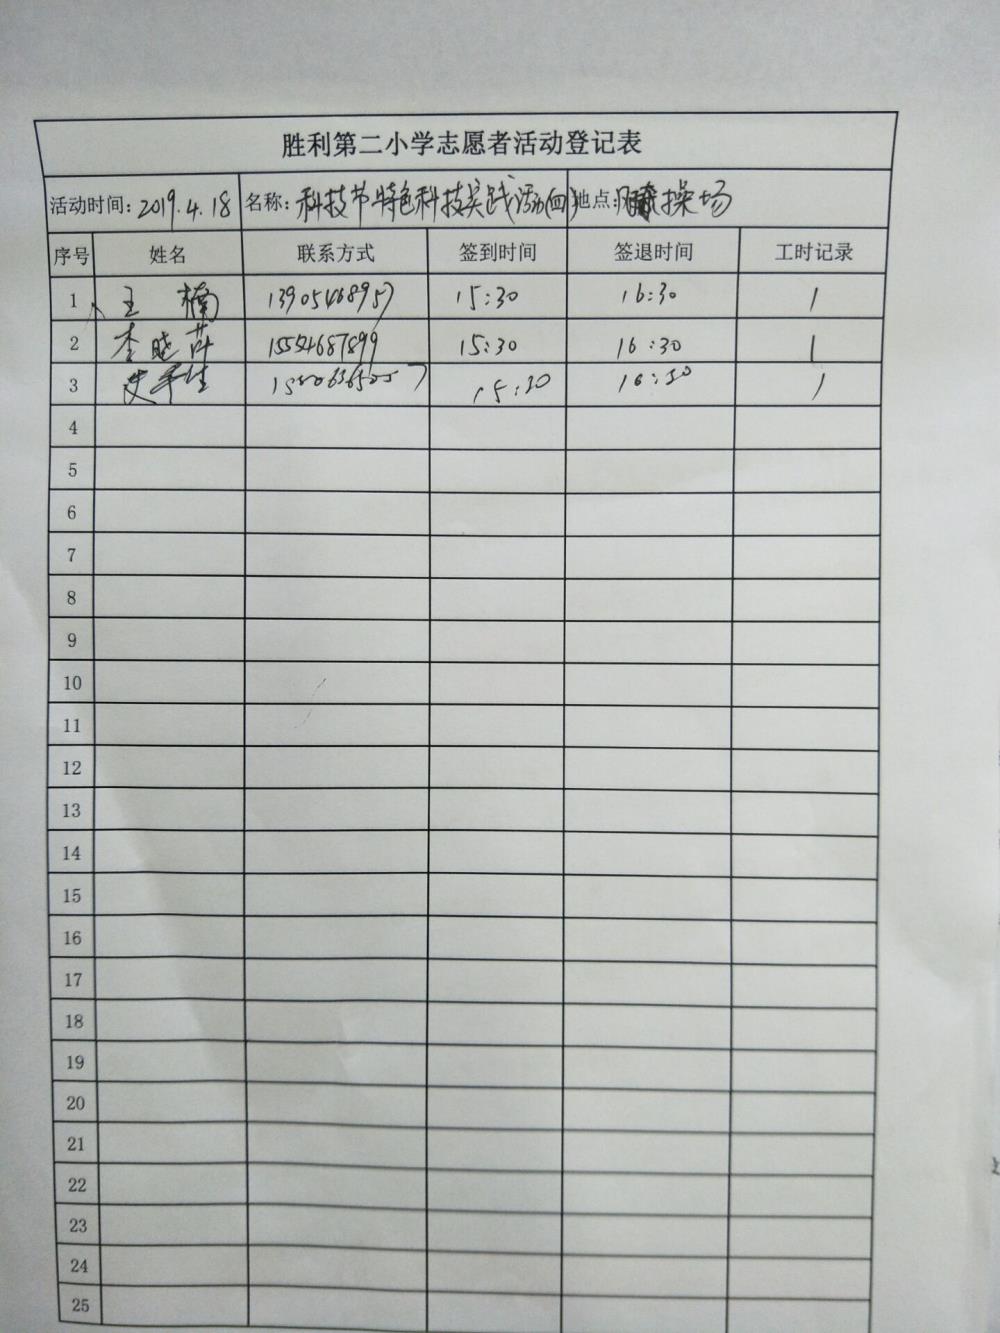 胜利第二小学志愿者活动登记表
活动时间: 2019.4.18 名称: 科技节特色科技实践活动(四) 地点: 操场
序号 姓名 联系方式 签到时间 签退时间 工时记录
1 王楠 13905468957 15:30 16:30 1
2 李晓 15554687899 15:30 16:30 1
3 15:30 16:30 1
4
5
6
7
8
9
10
11
12
13
14
15
16
17
18
19
20
21
22
23
24
25